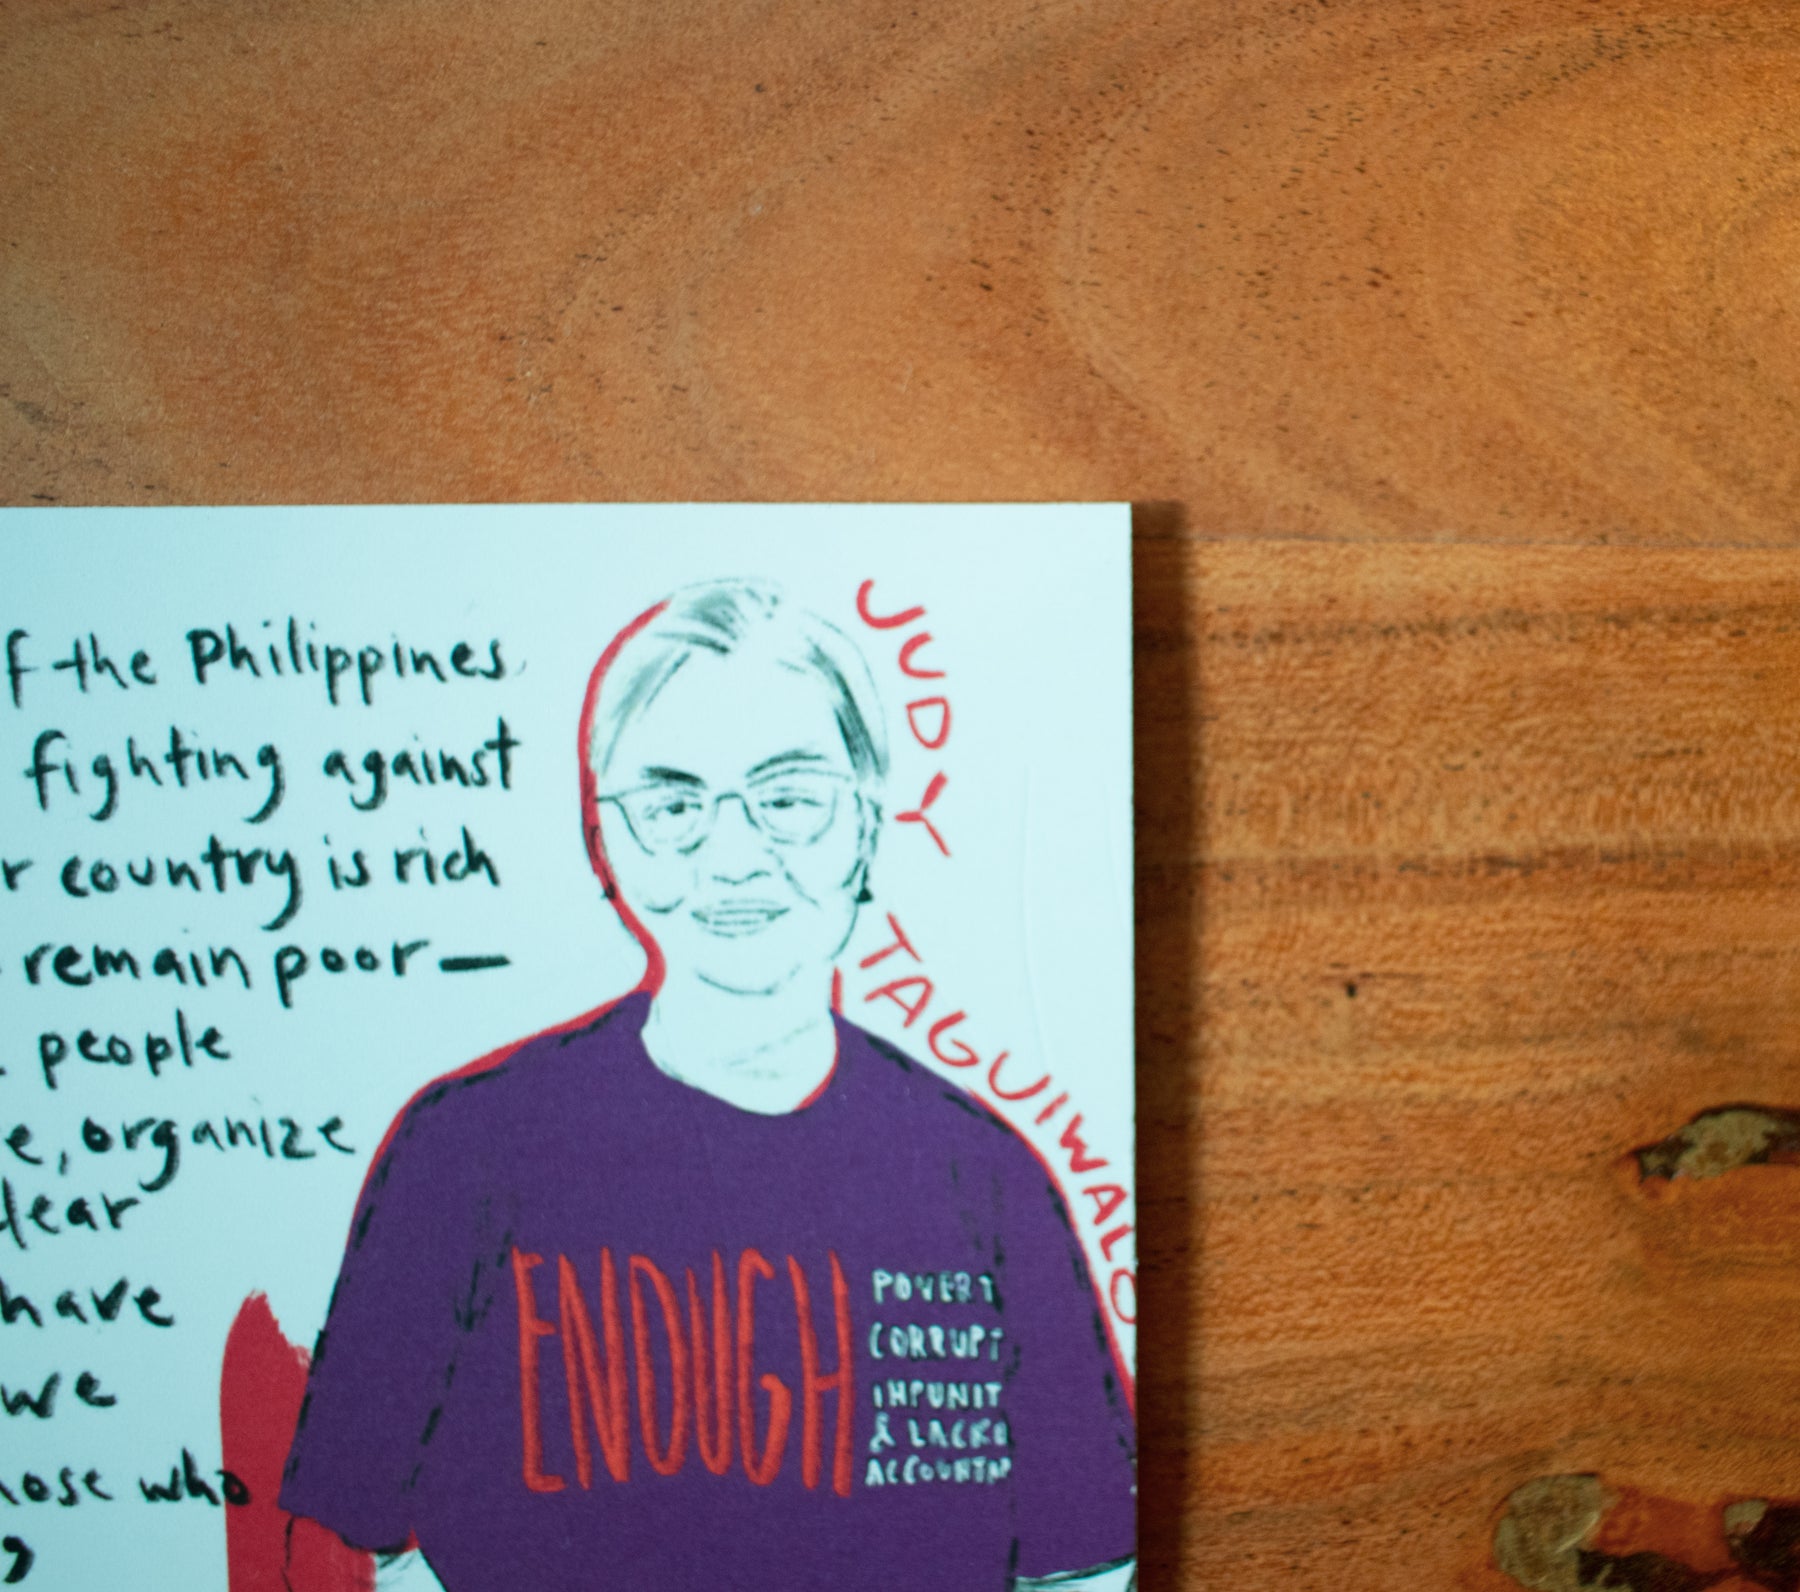 f the Philippines.
fighting against
r country is rich
remain poor—
people
e, organize
lear
have
we
hose who
?
JUDY TAGUIWALO
ENOUGH
POVERT
CORRUPT
IMPUNIT
& LACK O
ACCOUNTAB